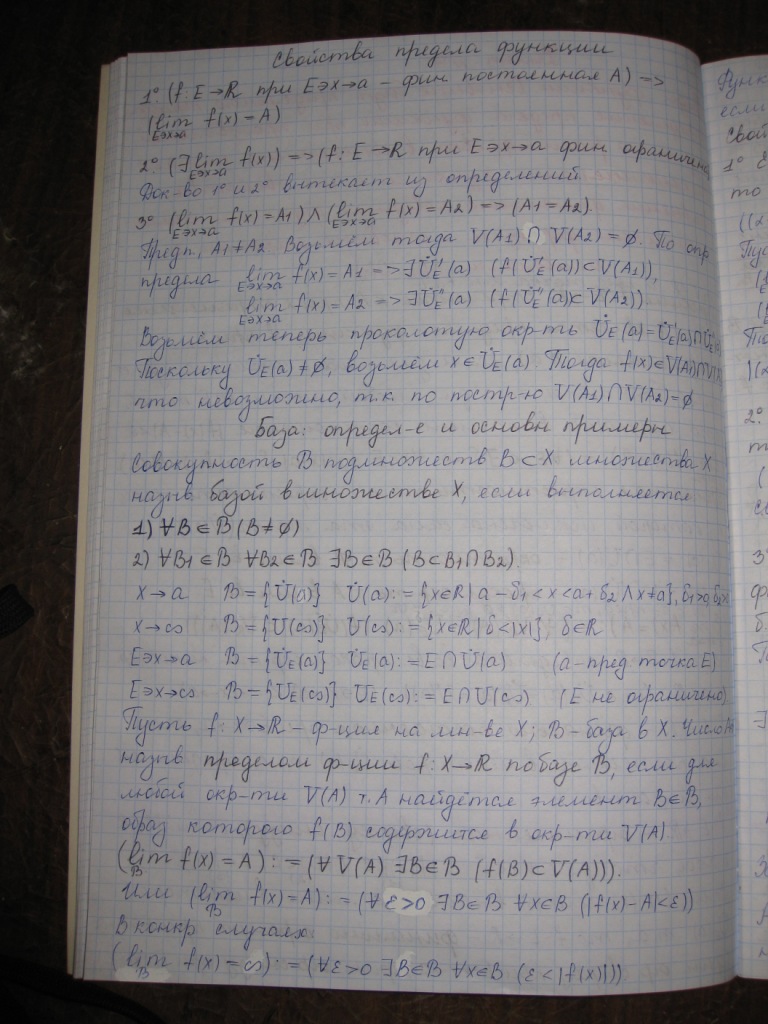 Свойства предела функции
1° (f: E→R при E∋x→a – фин. постоянная A) =>
(lim f(x) = A)
E∋x→a
2° (∃ lim f(x)) => (f: E→R при E∋x→a фин ограничена
E∋x→a
Док-во 1° и 2° вытекает из определений.
3° (lim f(x) = A1) ∧ (lim f(x) = A2) => (A1 = A2).
E∋x→a E∋x→a
Предп, A1≠A2 Возьмём тогда V(A1) ∩ V(A2) = ∅. По опр
предела lim f(x) = A1 => ∃U̇'E(a) (f(U̇'E(a)) ⊂ V(A1)),
E∋x→a
lim f(x) = A2 => ∃U̇''E(a) (f(U̇''E(a)) ⊂ V(A2)).
E∋x→a
Возьмём теперь проколотую окр-ть U̇E(a) = U̇'E(a)∩U̇''E(a)
Поскольку U̇E(a) ≠ ∅, возьмём x ∈ U̇E(a). Тогда f(x) ∈ V(A1)∩V(
что невозможно, т.к. по постр-ю V(A1) ∩ V(A2) = ∅
База: определ-е и основн примеры
Совокупность B подмножеств B ⊂ X множества X
назыв базой в множестве X, если выполняется
1) ∀B ∈ B (B ≠ ∅)
2) ∀B1 ∈ B ∀B2 ∈ B ∃B ∈ B (B ⊂ B1 ∩ B2).
x→a B = {U̇(a)} U̇(a) := {x∈R | a – δ1 < x < a + δ2 ∧ x≠a}, δ1>0, δ2>
x→∞ B = {U(∞)} U(∞) := {x∈R | δ<|x|}, δ∈R
E∋x→a B = {U̇E(a)} U̇E(a) := E∩U̇(a) (a – пред. точка E)
E∋x→∞ B = {UE(∞)} UE(∞) := E∩U(∞) (E не ограничено)
Пусть f: X→R – ф-ция на мн-ве X; B – база в X. Число A
назыв пределом ф-ции f: X→R по базе B, если для
любой окр-ти V(A) т. A найдётся элемент B∈B,
образ которого f(B) содержится в окр-ти V(A)
(lim f(x) = A) := (∀V(A) ∃B∈B (f(B) ⊂ V(A))).
B
Или (lim f(x) = A) := (∀ε>0 ∃B∈B ∀x∈B (|f(x)–A|<ε))
B
В конкр случаях
(lim f(x) = ∞) := (∀ε>0 ∃B∈B ∀x∈B (ε<|f(x)|))
B
Функ
если
Свой
1°
то
((2
Пус
2°
т
3°